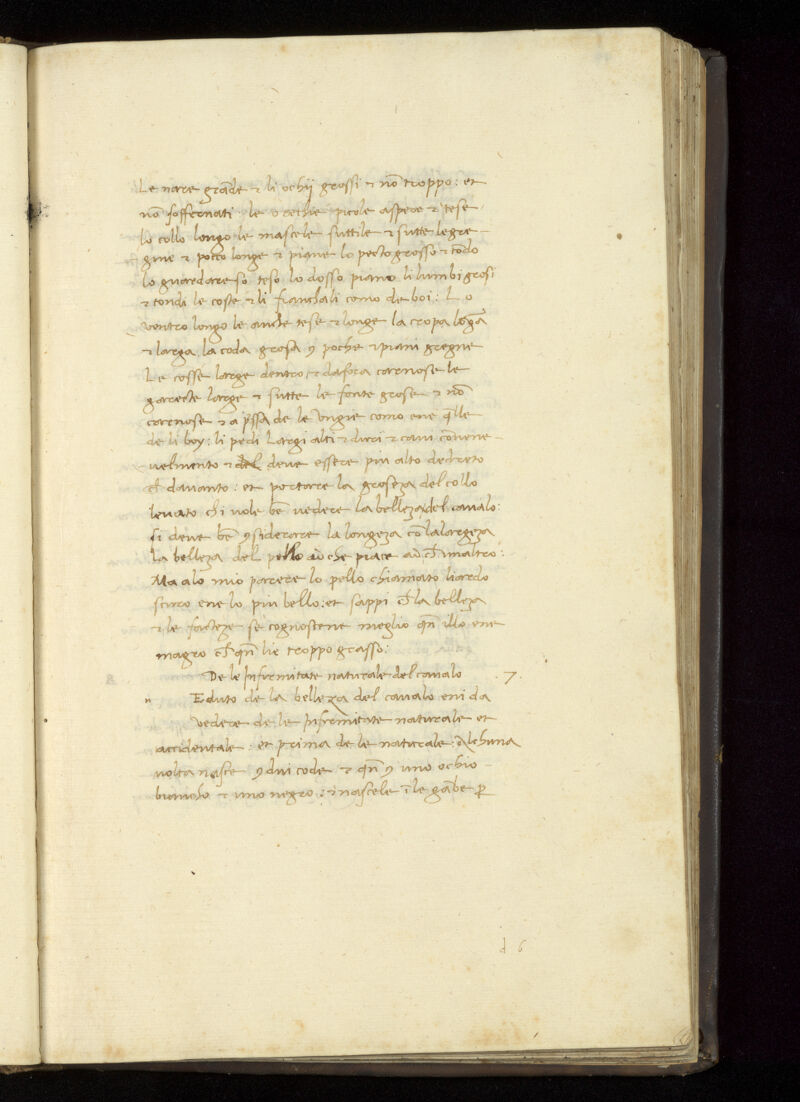 Le nare grāde & li ochij grossi & nō troppo: et
nō soffernati le orechie picole aspere & tese
Lo collo longo le mascele suttile & sutte le gre
gne & pocco longe & piane lo pecto grosso & tōdo
lo guardare so teso lo dosso piano li lumbi grosi
& tondi le coste & li fianchali como de boi: Lo
ventro longo le anche tese & longe la cropa lōga
& larga la coda grosa 9 poche & piani gregne
Le cosse large dentro & dafora carnose le
garrecte large & sutte le fonte grose & nō
carnose & a p̄ssa de le ungie como ene q̄lle
de li boy: li pedi Largi alti & duri & cavi cōvene
velmento & del deve essere piu alto dedreto
ch̄ davanto: et portarre la groseza del collo
levato chi vole bē vedere la belleza del cavalo:
si deve bē 9siderare la longeza cō la largeza
la belleza del pello aū che piace aū ch̄ un altro:
Ma alo mio parere lo pello chiamato liardo
scuro ene lo piu bello: et sappi ch̄ la belleza
& le facteze se cognoscene meglio qn̄ illo ene
magro ch̄ qn̄ lie troppo grasso:
De le Infirmitate naturale del cavalo 7.
n Eduto de la belleza del cavalo eni da
vedere de le Infirmitate naturale et
accidentale: et prima de le naturale: Alchuna
volta nasce 9 dui code & qn̄ 9 uno ochio
biancho & uno negro: & nascele ī le gābe p̄
d 6